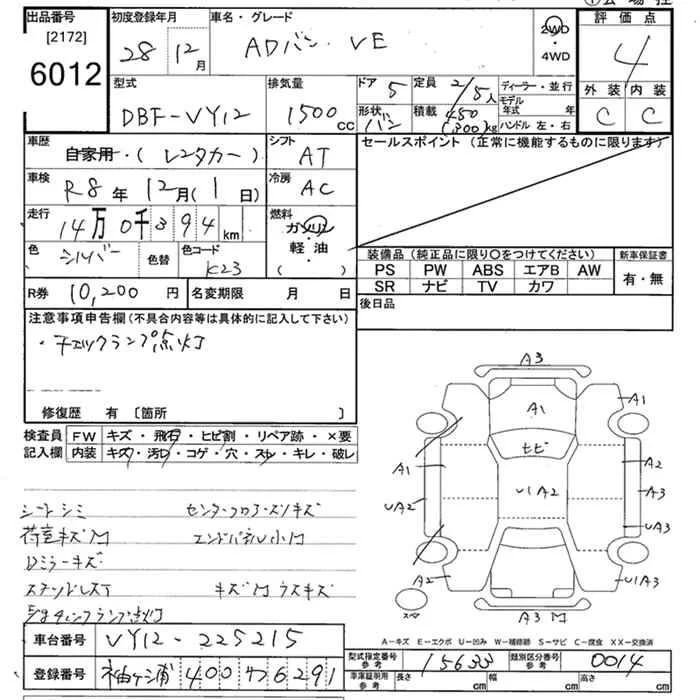 出品番号
[2172]
6012
初度登録年月
28 12月
車名・グレード
ADバン VE
2WD
・4WD
評価点
4
外装 内装
C C
型式
DBF-VY12
排気量
1500 CC
ドア 5
形状 バン
定員 2/5人
積載 450 (300)kg
ディーラー・並行
モデル年式 年
ハンドル 左・右
車歴
自家用・(レンタカー)
シフト
AT
セールスポイント(正常に機能するものに限ります)
車検
R8年 12月(1日)
冷房
AC
走行
14万0千394km
燃料
ガソリン
軽油
( )
色
シルバー
色替
色コード
K23
装備品(純正品に限り○をつけてください)
新車保証書
PS PW ABS エアB AW
SR ナビ TV カワ
有・無
R券 10,200円
名変期限 月 日
後日品
注意事項申告欄(不具合内容等は具体的に記入して下さい)
・チェックランプ点灯
修復歴 有 〔箇所 〕
検査員記入欄
FW キズ・飛石・ヒビ割・リペア跡・×要
内装 キズ・汚レ・コゲ・穴・スレ・キレ・破レ
シートシミ
荷室キズM
Dミラーキズ
エンドパネル小M
キズM ウスキズ
A3
A1
A1
ヒビ
A1
A2
UA2
U1A2
A3
UA3
A2
U1A3
スペア
A3M
A-キズ E-エクボ U-凹み W-補修跡 S-サビ C-腐食 XX-交換済
車台番号
VY12-225215
登録番号
袖ヶ浦 400 ワ 6291
型式指定番号 参考
15633
類別区分番号 参考
0014
車庫証明用 参考
長さ cm
幅 cm
高さ cm